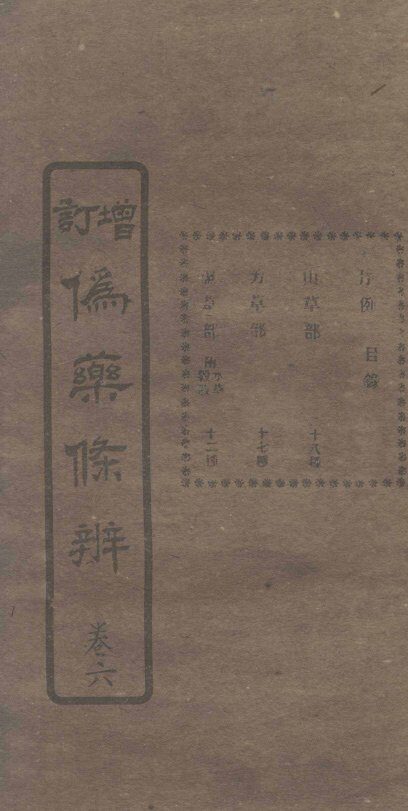 增訂
偽藥條辨
卷六
序例 目錄
山草部 十八種
芳草部 十七種
草部 附 十二種